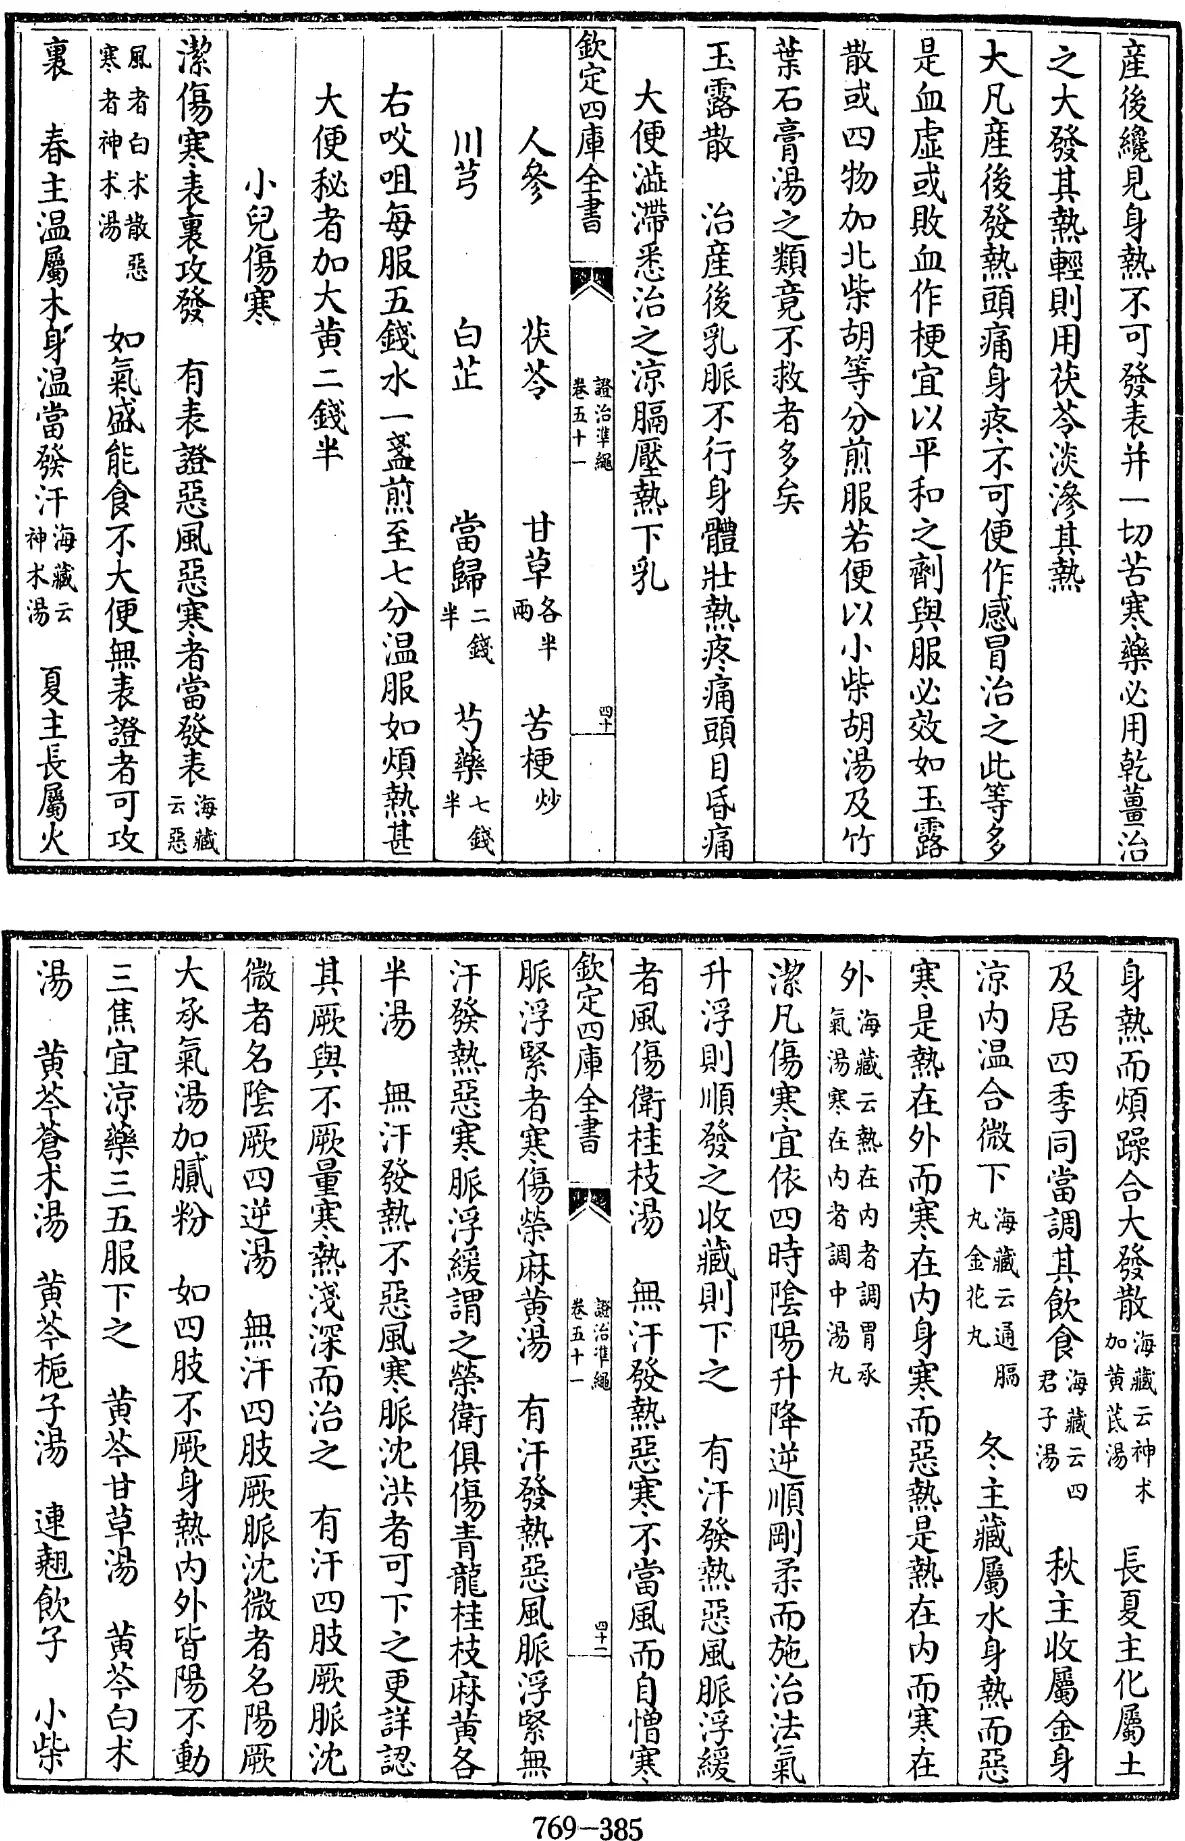 産後纔見身熱不可發表并一切苦寒藥必用乾薑治
之大發其熱輕則用茯苓淡滲其熱
大凡産後發熱頭痛身疼不可便作感冒治之此等多
是血虛或敗血作梗宜以平和之劑與服必效如玉露
散或四物加北柴胡等分煎服若便以小柴胡湯及竹
葉石膏湯之類竟不救者多矣
玉露散　治産後乳脈不行身體壯熱疼痛頭目昏痛
大便澁滯悉治之涼膈壓熱下乳
欽定四庫全書　證治準繩卷五十一　四十
人參　茯苓　甘草各半兩　苦梗炒
川芎　白芷　當歸二錢半　芍藥七錢半
右㕮咀每服五錢水一盞煎至七分温服如煩熱甚
大便秘者加大黄二錢半
小兒傷寒
潔傷寒表裏攻發　有表證惡風惡寒者當發表海藏云惡
風者白术散惡寒者神术湯　如氣盛能食不大便無表證者可攻
裏　春主温屬木身温當發汗海藏云神术湯　夏主長屬火
身熱而煩躁合大發散海藏云神术加黄芪湯　長夏主化屬土
及居四季同當調其飲食海藏云四君子湯　秋主收屬金身
涼内温合微下海藏云通膈丸金花丸　冬主藏屬水身熱而惡
寒是熱在外而寒在内身寒而惡熱是熱在内而寒在
外海藏云熱在内者調胃承氣湯寒在内者調中湯丸
潔凡傷寒宜依四時陰陽升降逆順剛柔而施治法氣
升浮則順發之收藏則下之　有汗發熱惡風脈浮緩
者風傷衛桂枝湯　無汗發熱惡寒不當風而自憎寒
欽定四庫全書　證治準繩卷五十一　四十一
脈浮緊者寒傷榮麻黄湯　有汗發熱惡風脈浮緊無
汗發熱惡寒脈浮緩謂之榮衛俱傷青龍桂枝麻黄各
半湯　無汗發熱不惡風寒脈沈洪者可下之更詳認
其厥與不厥量寒熱淺深而治之　有汗四肢厥脈沈
微者名陰厥四逆湯　無汗四肢厥脈沈微者名陽厥
大承氣湯加膩粉　如四肢不厥身熱内外皆陽不動
三焦宜涼藥三五服下之　黄芩甘草湯　黄芩白术
湯　黄芩蒼术湯　黄芩梔子湯　連翹飲子　小柴
769-385